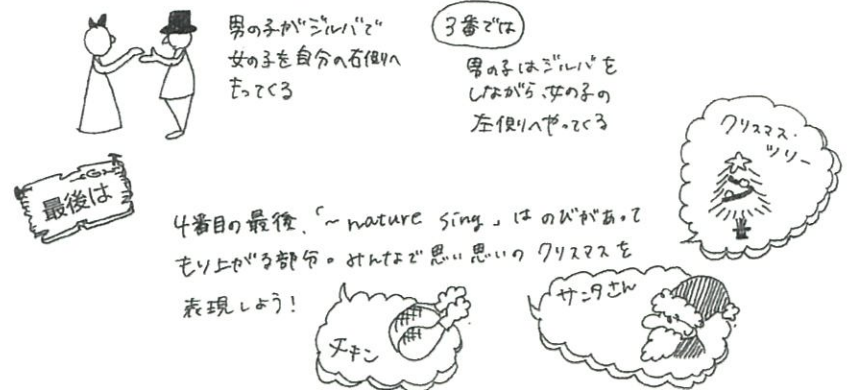 男の子がジルバで
女の子を自分の右側へ
もってくる
3番では
男の子はジルバを
しながら、女の子の
左側へやってくる
クリスマス・
ツリー
最後は
4番目の最後、「~nature sing」はのびがあって
もり上がる部分。みんなで思い思いのクリスマスを
表現しよう!
チキン
サンタさん